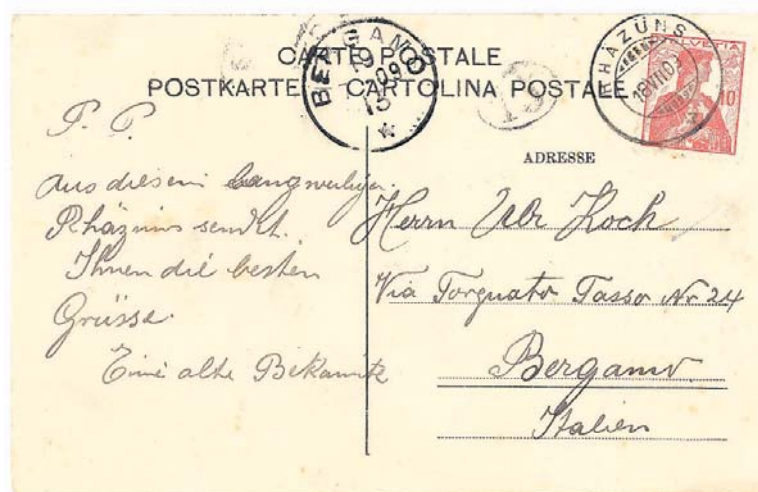 CARTE POSTALE
POSTKARTE CARTOLINA POSTALE
BERGAMO
19
09
15
RHÄZÜNS
18 VII 09
HELVETIA
10
ADRESSE
P. P.
Aus diesem langweiligen
Rhäzüns sendet
Ihnen die besten
Grüsse
Eine alte Bekannte
Herrn Koch
Via Torquato Tasso Nr 24
Bergamo
Italien